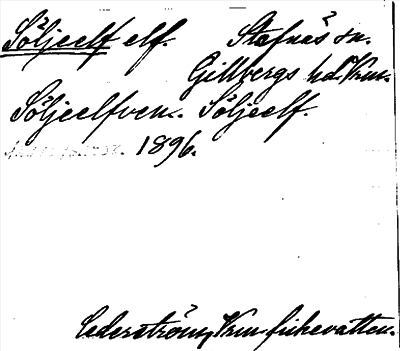 Söljeelf elf. Stafnäs sn.
Gillbergs hd. Vrm.
Söljeelfven. Söljeelf.
1896.
Cederström, Vrm. fiskevatten.